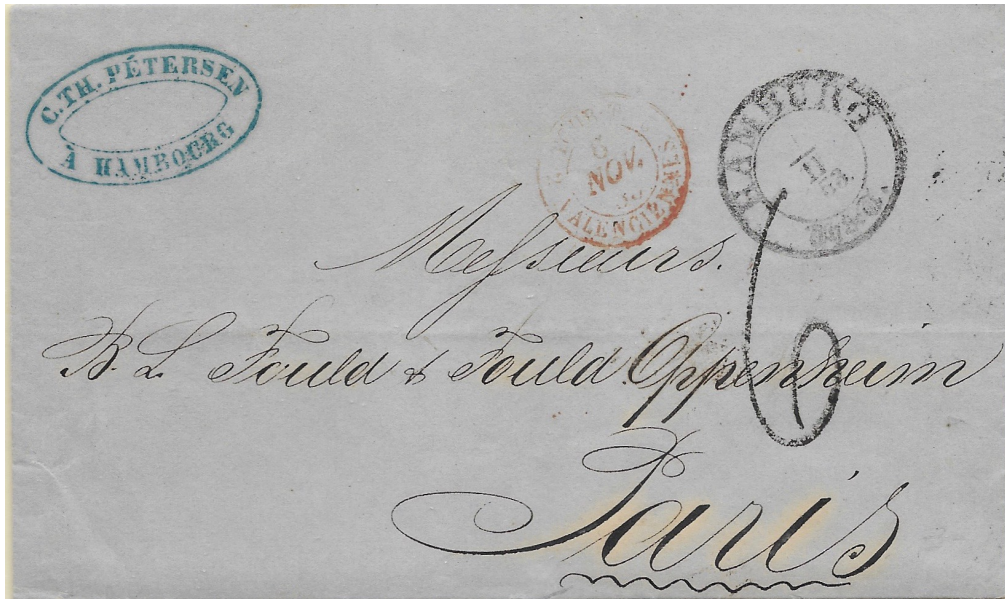 C. TH. PÉTERSEN
À HAMBOURG
6
NOV.
VALENCIENNES
HAMBURG
11
Messieurs.
B. L. Fould & Fould Oppenheim
Paris